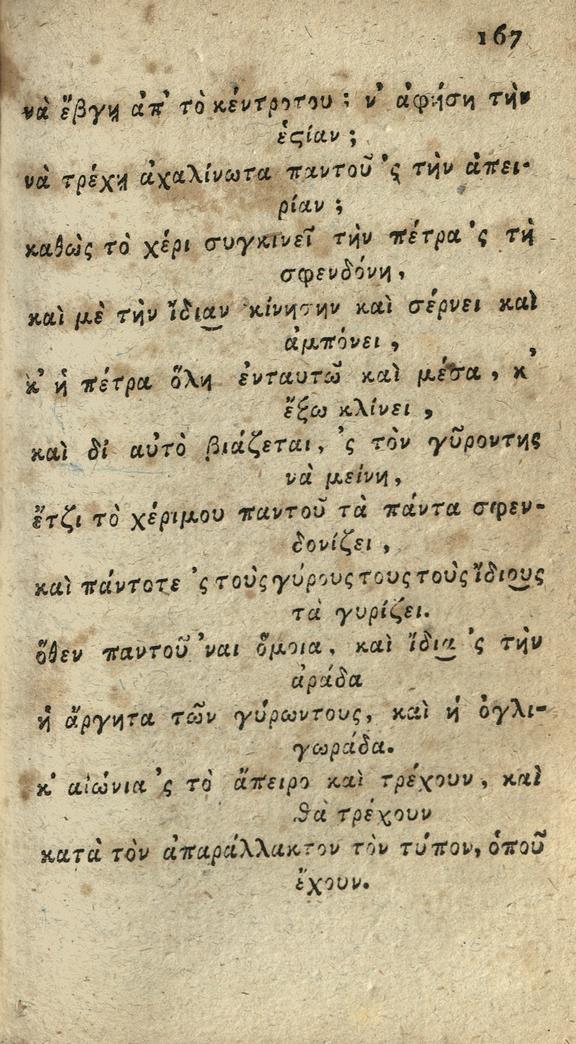 167
νὰ ἔβγῃ ἀπ' τὸ κέντροτου ; ν' ἀφήσῃ τὴν
ἑςίαν ;
νὰ τρέχῃ ἀχαλίνωτα παντοῦ 'ς τὴν ἀπει-
ρίαν ;
καθὼς τὸ χέρι συγκινεῖ τὴν πέτρα 'ς τὴ
σφενδόνη,
καὶ μὲ τὴν ἴδι͜αν κίνησην καὶ σέρνει καὶ
ἀμπόνει,
κ' ἡ πέτρα ὅλη ἐνταυτῶ καὶ μέσα, κ'
ἔξω κλίνει,
καὶ δί αὐτὸ βιάζεται, 'ς τὸν γῦροντης
νὰ μείνῃ,
ἔτζι τὸ χέριμου παντοῦ τὰ πάντα σφεν-
δονίζει,
καὶ πάντοτε 'ς τοὺς γύρους τους τοὺς ἴδι͜ους
τὰ γυρίζει.
ὅθεν παντοῦ 'ναι ὅμοια, καὶ ἴδι͜α 'ς τὴν
ἀράδα
ἡ ἄργητα τῶν γύρωντους, καὶ ἡ ὀγλι-
γωράδα.
κ' αἰώνια 'ς τὸ ἄπειρο καὶ τρέχουν, καὶ
θὰ τρέχουν
κατὰ τὸν ἀπαράλλακτον τὸν τύπον, ὁποῦ
ἔχουν.